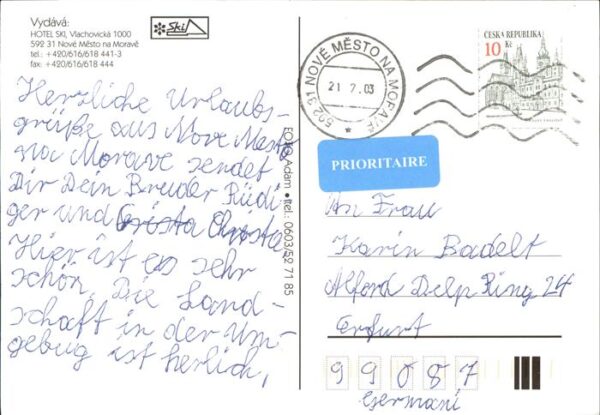 Vydává:
HOTEL SKI, Vlachovická 1000
592 31 Nové Město na Moravě
tel.: +420/616/618 441-3
fax: +420/616/618 444
Ski
Herzliche Urlaubs-
grüße aus Nove Mesto
na Morave sendet
Dir Dein Breuder Rüdi
ger und Christa
Hier ist es sehr
schön. Die Land-
schaft in der Um-
gebug ist herlich,
FOTO Adam • tel.: 0603/52 71 85
592 31 NOVÉ MĚSTO NA MORAVĚ
21.7.03
ČESKÁ REPUBLIKA
10 Kč
PRIORITAIRE
An Frau
Karin Badelt
Alfred Delp Ring 24
Erfurt
99087
Germani